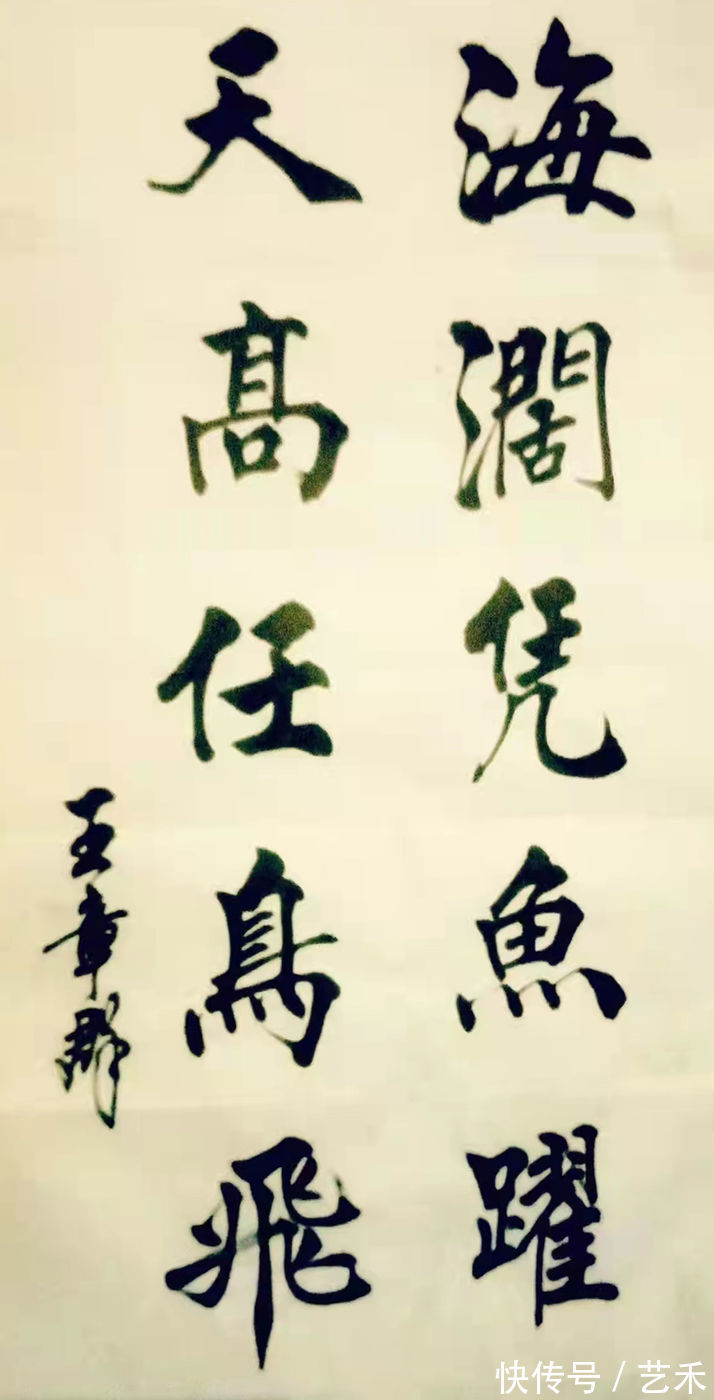 海濶凭魚躍
天高任鳥飛
王章群
快传号 / 艺禾